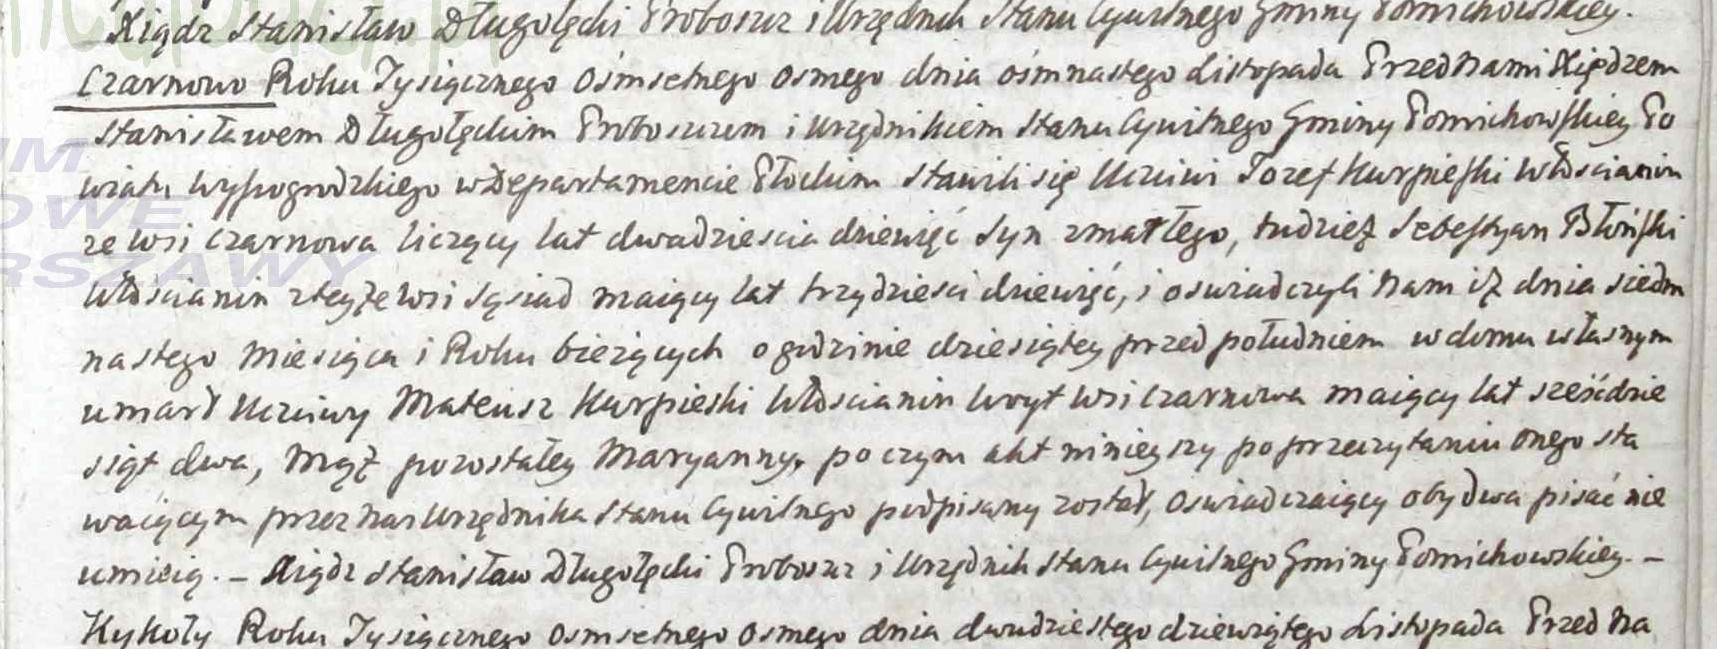 Xiądz Stanisław Długołęcki Proboszcz i Urzędnik Stanu Cywilnego Gminy Pomichowskiey.
Czarnowo Roku Tysiącznego Osmsetnego Osmego dnia osmnastego Listopada Przed Nami Xiędzem
Stanisławem Długołęckim Proboszczem i Urzędnikiem Stanu Cywilnego Gminy Pomichowskiey Po
wiatu Wyszogrodzkiego w Departamencie Płockim stawili się Uczciwi Jozef Kurpieski Włoscianin
ze wsi Czarnowa liczący lat dwadziescia dziewięć syn zmarłego, tudzież Sebestyan Błoński
Włoscianin z teyże wsi sąsiad maiący lat trzydziesci dziewięć, i oswiadczyli Nam iż dnia siedm
nastego Miesiąca i Roku bieżących o godzinie dziesiątey przed południem w domu własnym
umarł Uczciwy Mateusz Kurpieski Włoscianin Woyt wsi Czarnowa maiący lat sześćdzie
siąt dwa, Mąż pozostałey Maryanny, po czym akt ninieyszy po przeczytaniu onego sta
waiącym przez Nas Urzędnika Stanu Cywilnego podpisany został, oswiadczaiący obydwa pisać nie
umieią. – Xiądz Stanisław Długołęcki Proboszcz i Urzędnik Stanu Cywilnego Gminy Pomichowskiey. –
Kykoły Roku Tysiącznego Osmsetnego Osmego dnia dwudziestego dziewiątego Listopada Przed Na